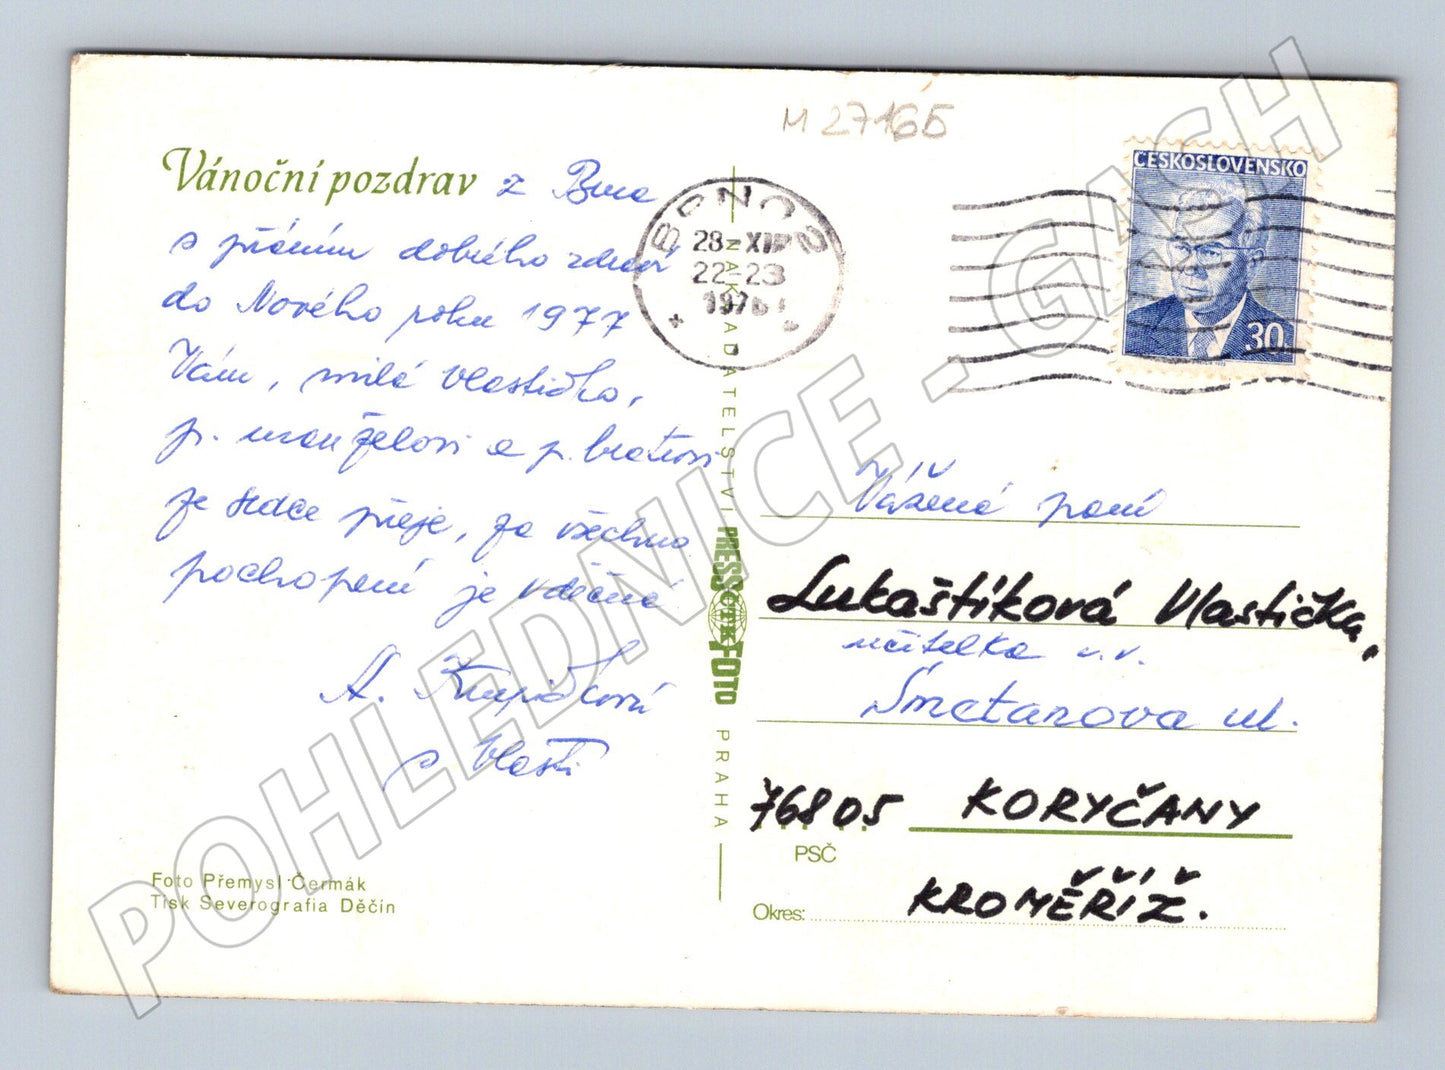 M 27165
Vánoční pozdrav z Brna
s přáním dobrého zdraví
do Nového roku 1977
Vám, milá Vlastičko,
p. manželovi a p. bratrovi
ze srdce přeje, za všechno
pochopení je vděčná
A.
s Vlastí
Foto Přemysl Čermák
Tisk Severografia Děčín
NAKLADATELSTVÍ PRESSFOTO PRAHA
BRNO 2
28.XII
22-23
1976
ČESKOSLOVENSKO
30
Vážená paní
Lukaštíková Vlastička,
učitelka v.v.
Smetanova ul.
76805 KORYČANY
PSČ
Okres: KROMĚŘÍŽ.
POHLEDNICE - GASH